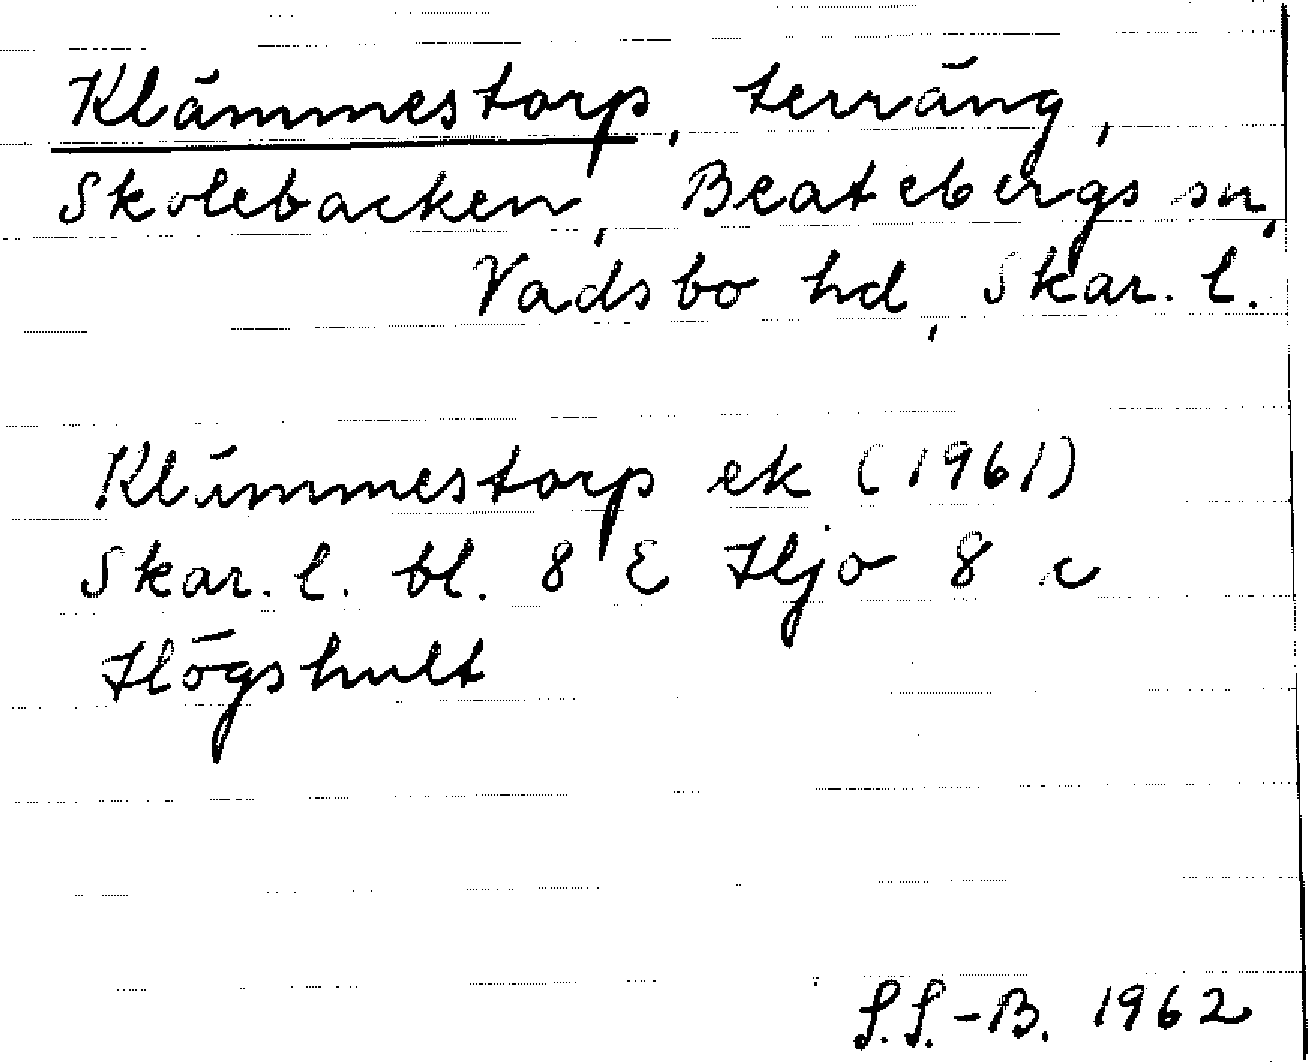 Klämmestorp, terräng,
Skolebacken, Beatebergs sn,
Vadsbo hd, Skar. l.
Klämmestorp ek (1961)
Skar. l. bl. 8 E Hjo 8 c
Högshult
S.S.-B. 1962